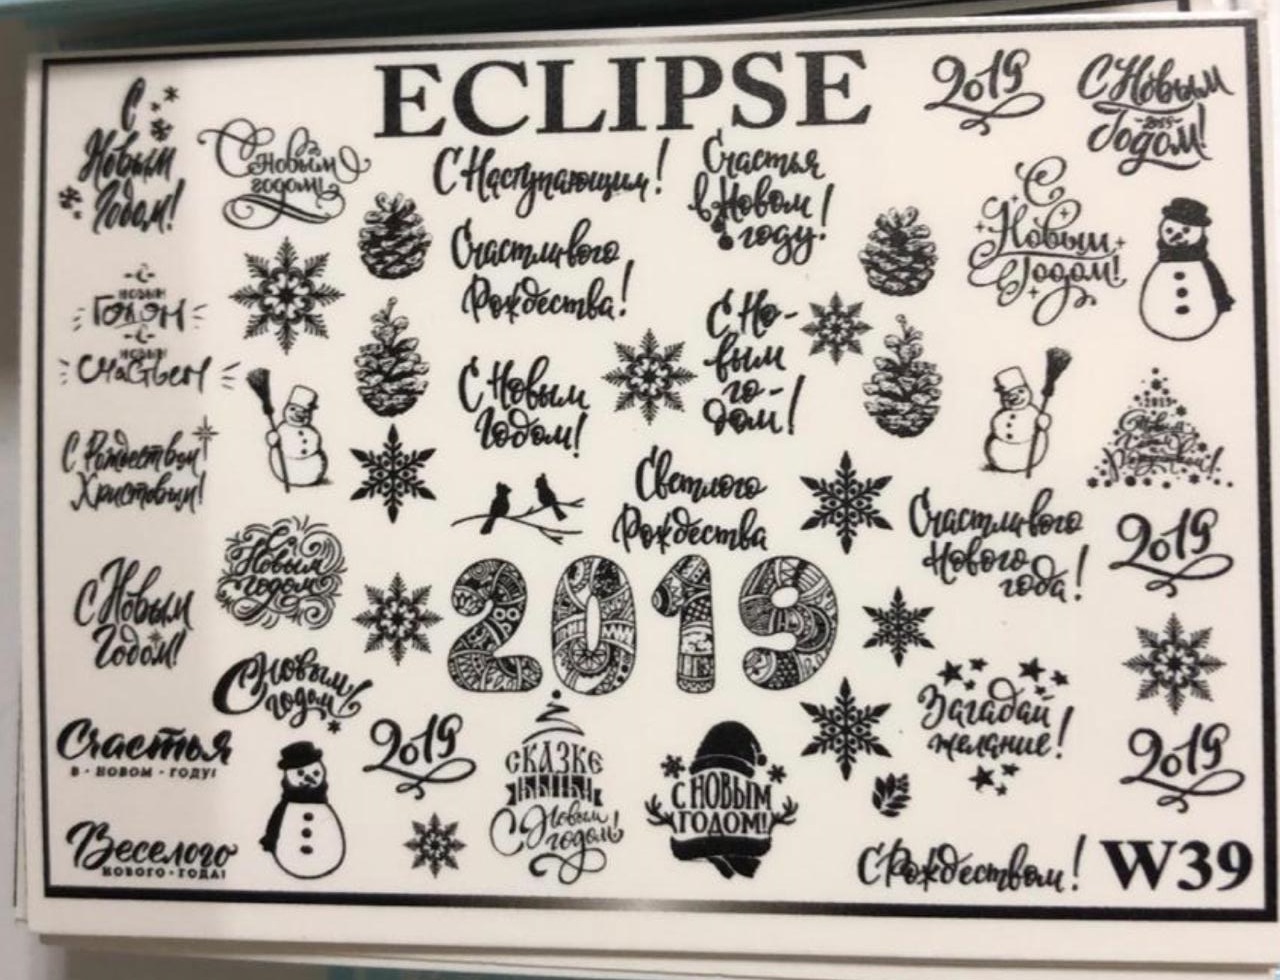 ECLIPSE
2019
С Новым
2019
Годом!
С
Новым
Годом!
С Новым
годом!
С Наступающим!
Счастья
в Новом
году!
С
Новым
Годом!
Счастливого
Рождества!
С
НОВЫМ
ГОДОМ
С
НОВЫМ
СЧАСТЬЕМ
С Но-
вым
го-
дом!
С Новым
Годом!
2019
С Рождеством
Христовым!
Светлого
Рождества
Счастливого
Нового
года!
2019
Новым
годом
С Новым
Годом!
2019
С Новым
годом!
Загадай
желание!
Счастья
В · НОВОМ · ГОДУ!
2019
СКАЗКЕ
С Новым
годом!
С НОВЫМ
ГОДОМ!
2019
Веселого
НОВОГО · ГОДА!
С Рождеством!
W39